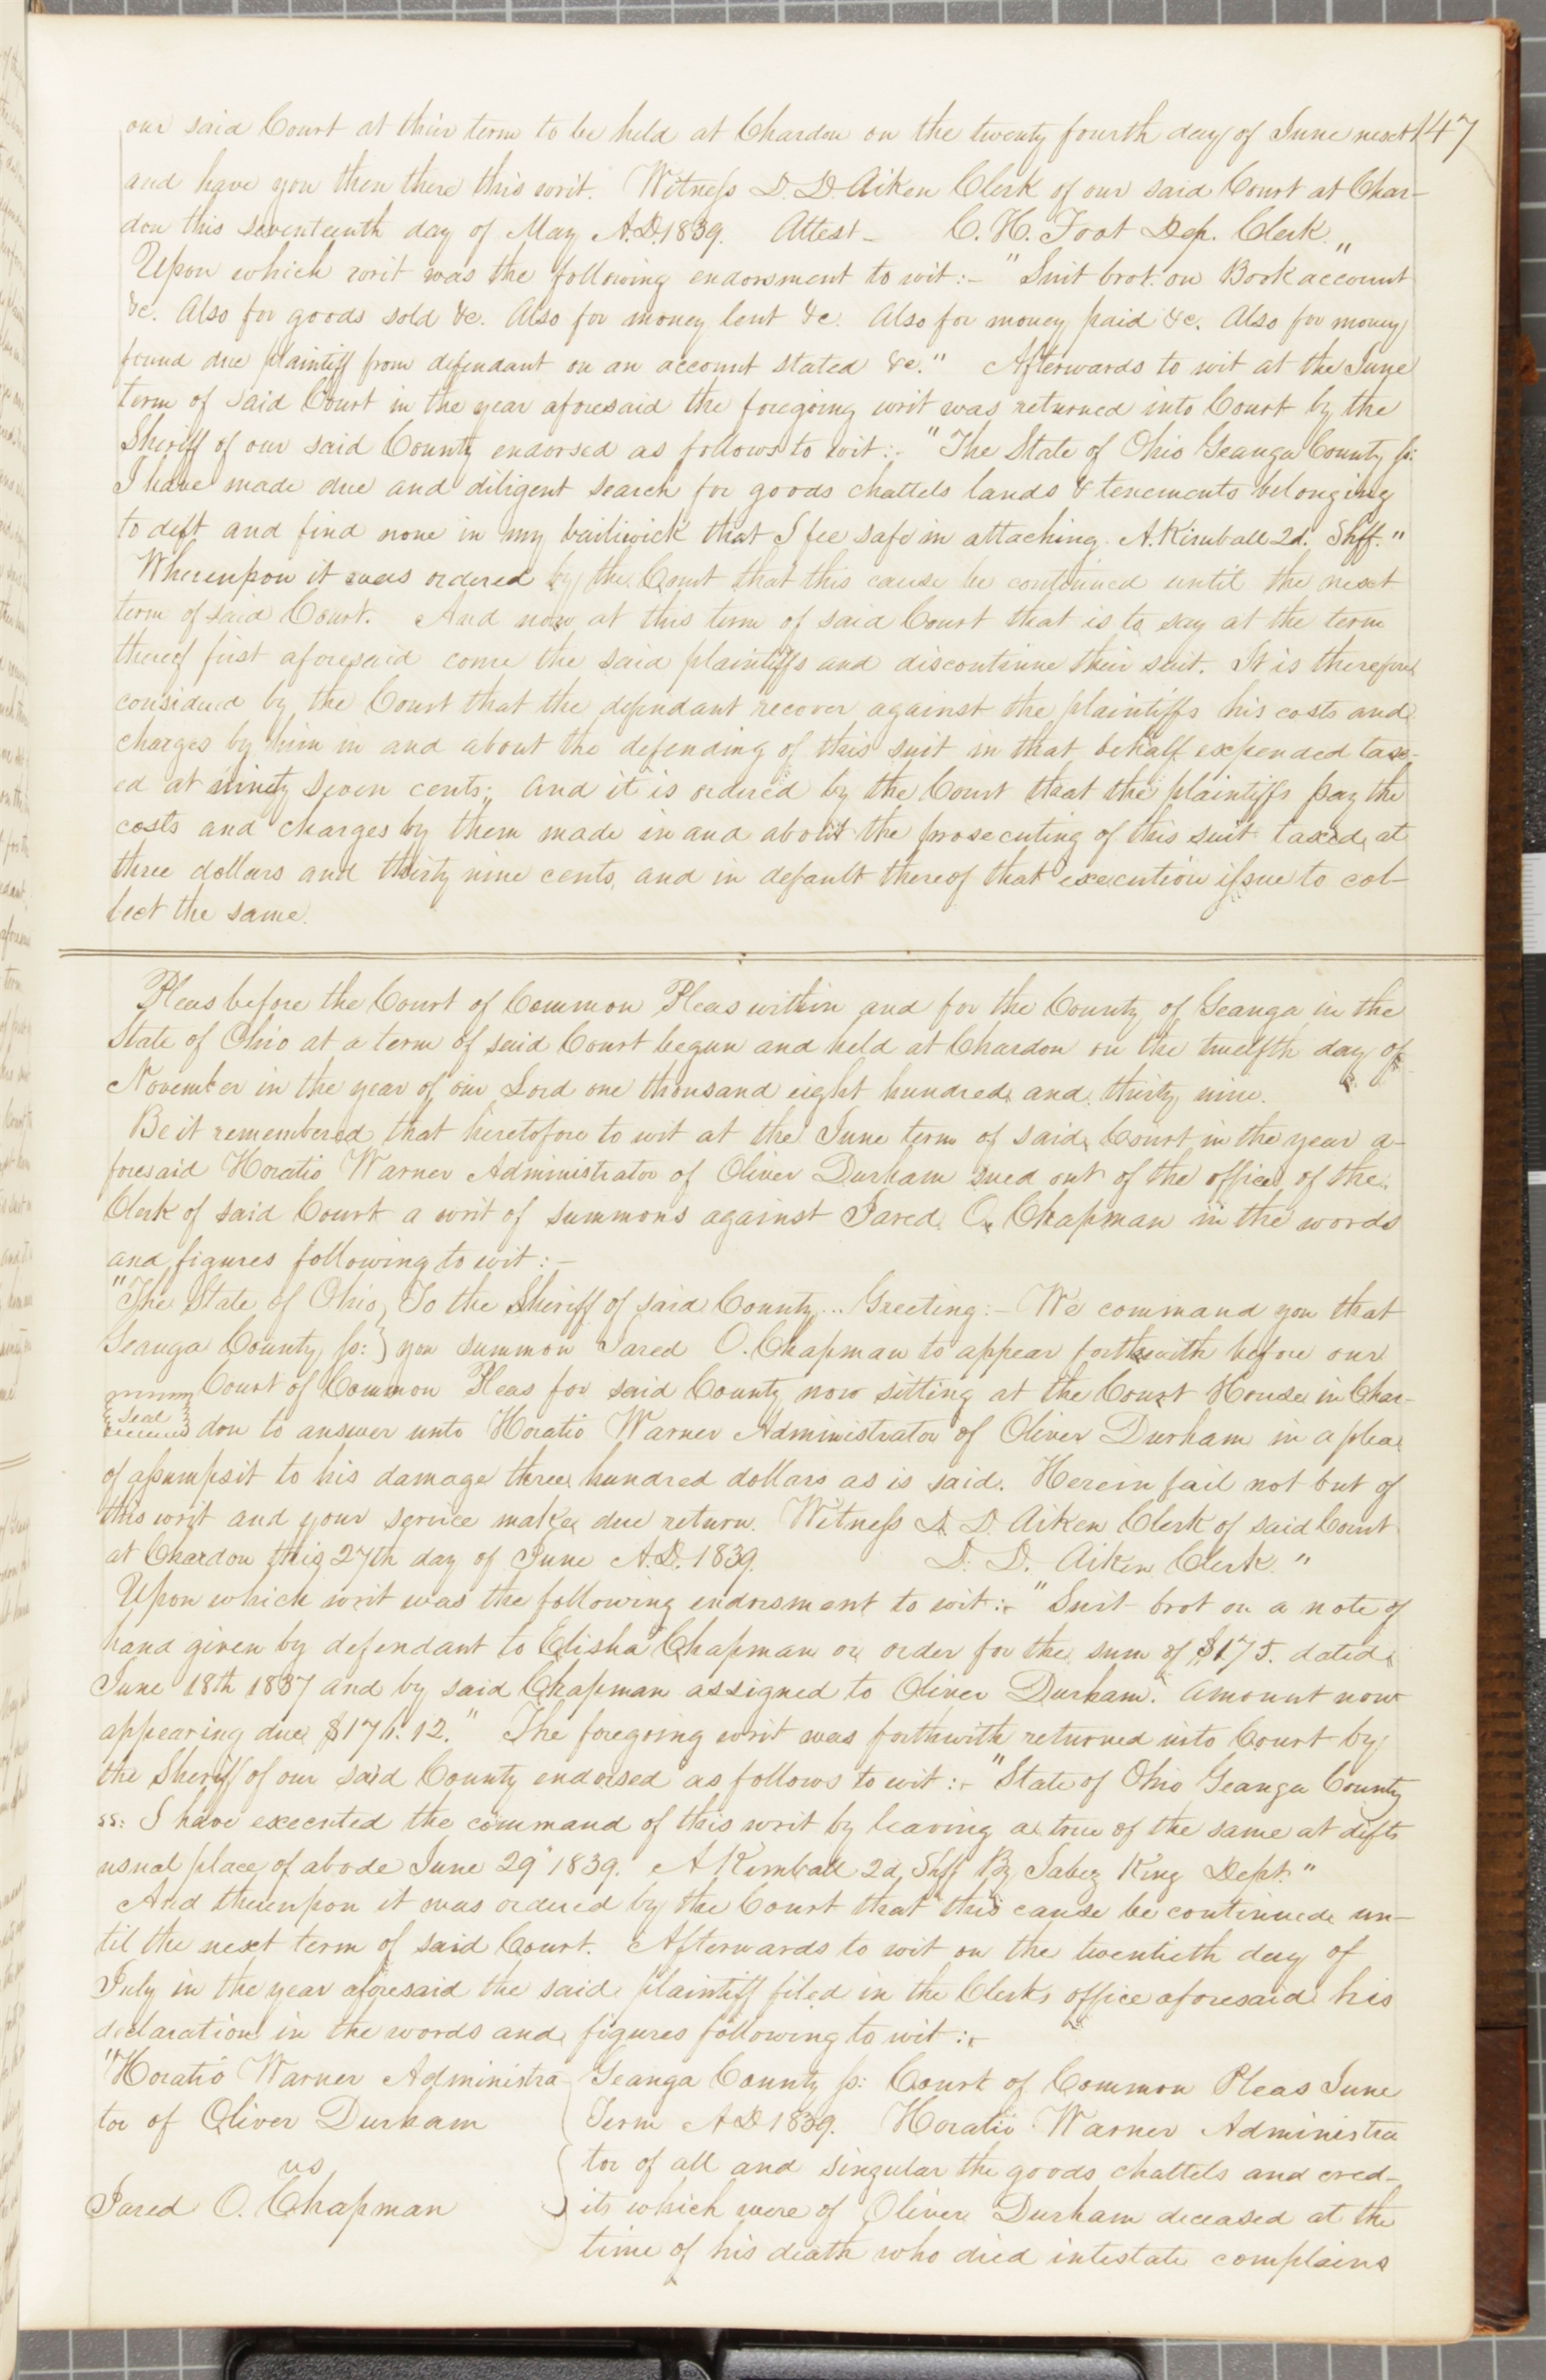 our said Court at their term to be held at Chardon on the twenty fourth day of June next 147
and have you then there this writ. Witness D. D. Aiken Clerk of our said Court at Char-
don this seventeenth day of May A.D. 1839. Attest - C. H. Foot Dep. Clerk."
Upon which writ was the following endorsment to wit:- "Suit brot. on Book account
&c. Also for goods sold &c. Also for money lent &c. Also for money paid &c. Also for money
found due plaintiff from defendant on an account stated &c." Afterwards to wit at the June
term of said Court in the year aforesaid the foregoing writ was returned into Court by the
Sheriff of our said County endorsed as follows to wit:- "The State of Ohio Geauga County ss:
I have made due and diligent search for goods chattels lands & tenements belonging
to deft and find none in my bailiwick that I fee safe in attaching. A. Kimball 2d. Shff."
Whereupon it was ordered by the Court that this cause be continued until the next
term of said Court. And now at this term of said Court that is to say at the term
thereof first aforesaid come the said plaintiffs and discontinue their suit. It is therefore
considered by the Court that the defendant recover against the plaintiffs his costs and
charges by him in and about the defending of this suit in that behalf expended tax-
ed at ninety seven cents; And it is ordered by the Court that the plaintiffs pay the
costs and charges by them made in and about the prosecuting of this suit taxed at
three dollars and thirty nine cents, and in default thereof that execution issue to col-
lect the same.
Pleas before the Court of Common Pleas within and for the County of Geauga in the
State of Ohio at a term of said Court begun and held at Chardon on the twelfth day of
November in the year of our Lord one thousand eight hundred and thirty nine.
Be it remembered that heretofore to wit at the June term of said Court in the year a-
foresaid Horatio Warner Administrator of Oliver Durham sued out of the office of the
Clerk of said Court a writ of summons against Jared O. Chapman in the words
and figures following to wit:-
"The State of Ohio, To the Sheriff of said County... Greeting:- We command you that
Geauga County ss: } you summon Jared O. Chapman to appear forthwith before our
Court of Common Pleas for said County now sitting at the Court House in Char-
Seal don to answer unto Horatio Warner Administrator of Oliver Durham in a plea
of assumpsit to his damage three hundred dollars as is said. Herein fail not but of
this writ and your service make due return. Witness D. D. Aiken Clerk of said Court
at Chardon this 27th day of June A.D. 1839. D. D. Aiken Clerk."
Upon which writ was the following endorsment to wit:- "Suit brot on a note of
hand given by defendant to Elisha Chapman or order for the sum of $175. dated
June 18th 1837 and by said Chapman assigned to Oliver Durham. Amount now
appearing due $176.12." The foregoing writ was forthwith returned into Court by
the Sheriff of our said County endorsed as follows to wit:- "State of Ohio Geauga County
ss: I have executed the command of this writ by leaving a true of the same at defts
usual place of abode June 29" 1839. A Kimball 2d, Shff By Jabez King Dept."
And thereupon it was ordered by the Court that this cause be continued un-
til the next term of said Court. Afterwards to wit on the twentieth day of
July in the year aforesaid the said plaintiff filed in the Clerks office aforesaid his
declaration in the words and figures following to wit:-
"Horatio Warner Administra Geauga County ss: Court of Common Pleas June
tor of Oliver Durham Term A D 1839. Horatio Warner Administra
vs tor of all and singular the goods chattels and cred-
Jared O. Chapman its which were of Oliver Durham deceased at the
time of his death who died intestate complains